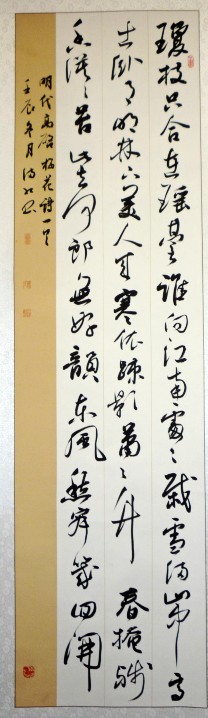 瓊枝只合在瑶臺誰向江南處々栽雪满山中高
士卧月明林下美人来寒依疎影蕭々竹春掩残
香漠々苔自去何郎無好韻東風愁寂幾回開
明代高啓梅花诗一首
壬辰冬月